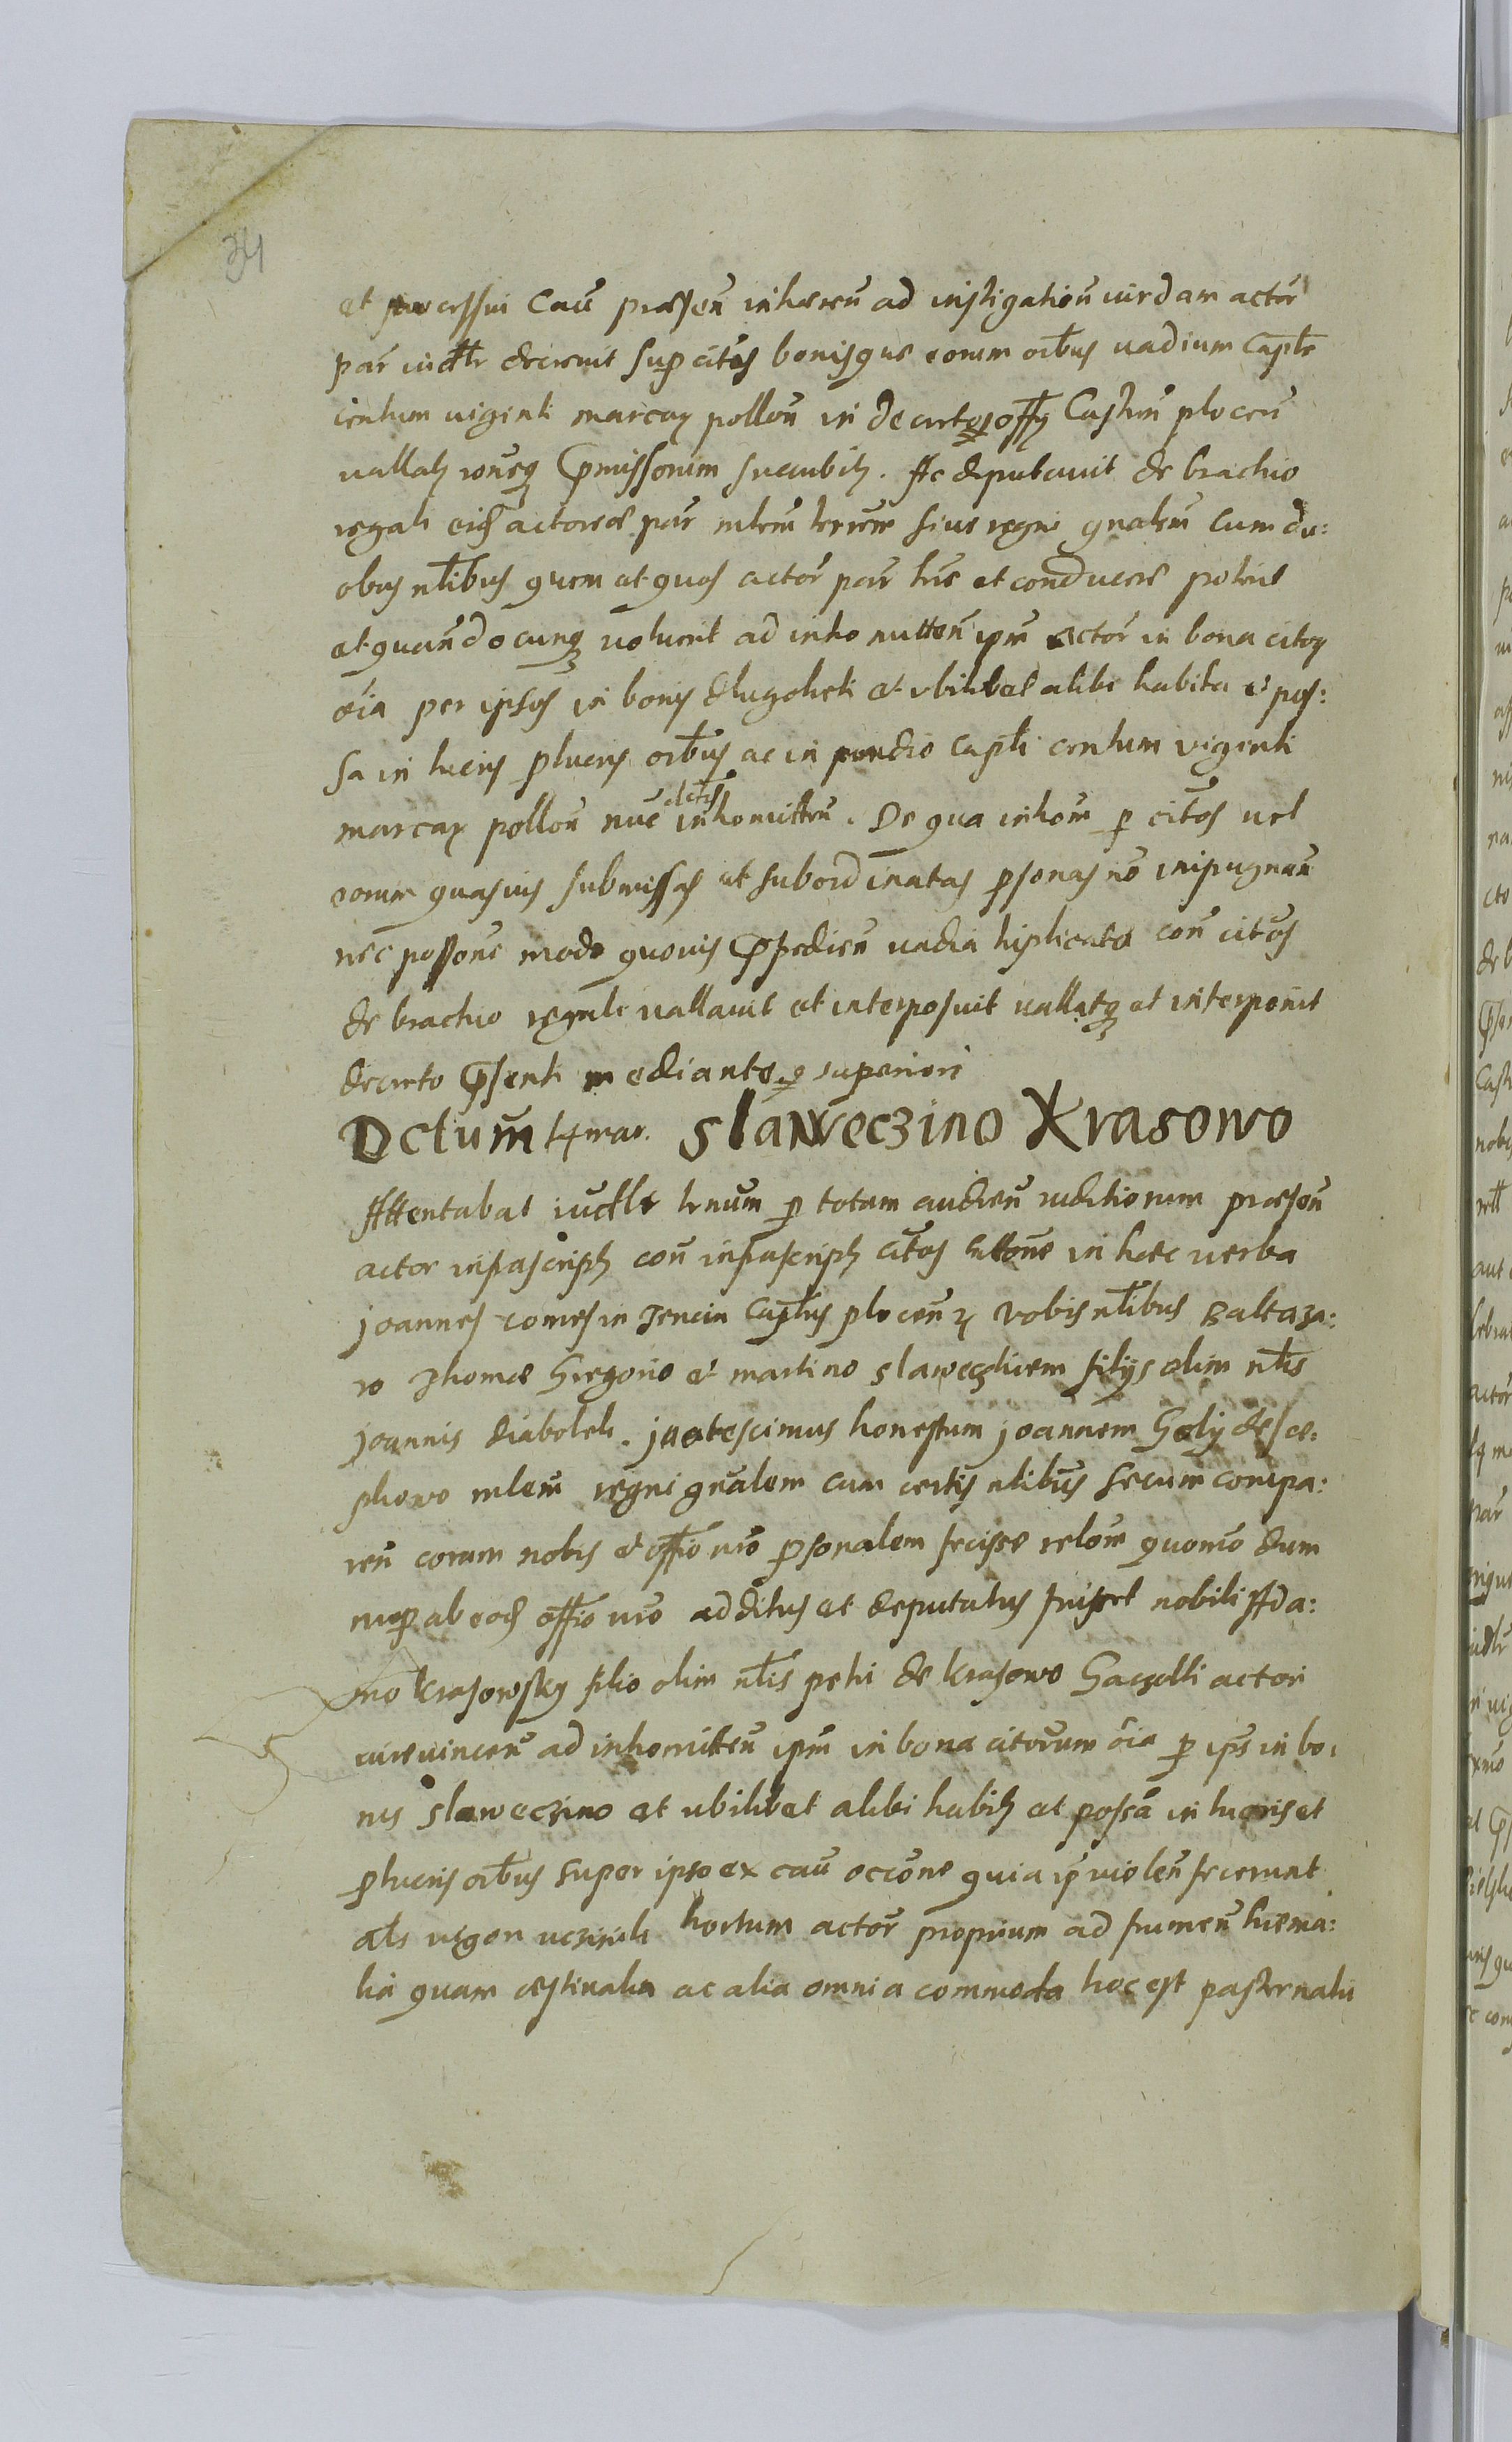 34
et processui Cau͞ præsen̄ inhæren̄ ad instigation̄ eiusdam actōr
par̄ iudtr decreuit sup citōs bonisque eorum oīb͡us uadium Captle
centum uigenti marcaꝝ pollon̄ in decreto offy Castrn̄ plocen̄
vallatʒ p̄missorum succubitʒ. Ac deputauit de brachio
regali eid̄ actoreæ par̄ mlem̄ terrēm siue regni gn̄alem̄ cum du:
obus nl̄ibus quem et quos actōr par̄ hīc et conducere poterit
et quan̄docunqʒ voluerit ad intromitten̄ ipm̄ Actōr in bona citoꝝ
oīa per ipsos in bonis dlugoleti et vbilibet alibi habita et pos:
sa in lucris p̱lucris oīb͡us ac in pondio captli centum viginti
marcaꝝ pollon̄ nūc dictis intromitten̄. De qua introm̄ p̱ citōs uel
eorum quasuis submissas et subordinatas p̱sonas nō inpugnan̄
nec possone modo quouis p̄pedien̄ uadia triplicata con̄ citōs
de brachio regali vallauit et interposuit uallatqʒ et interponit
decreto p̄senti mediante ꝙ superiori
Actum̄ 14 mar. Slaweczino Krasowo
Attentabat iudtle trnum p̱ totam audien̄ iuditiorum præsen̄
actor infrascriptʒ con̄ infrascriptʒ citōs cittōne in hæc verba
Joannes comes in Tencin Captn̄us plocen̄ ꝝ Vobis nl̄ibus Baltaza:
ro Thomæ Gregorio et martino slaweczkiem filijs olim nl̄is
Joannis diabolek. jnotescimus honestum joannem Golij de sce:
phowo mlem̄ regni gn̄alem cum certis nl̄ibus secum compa:
ren̄ coram nobis et offio nr̄o p̱sonalem fecisse relōm quomō dum
nup̱ ab eod̄ offio nr̄o additus et deputatus fuisset nobili Ada:
mo krasowsky filio olim nl̄is petri de krasowo Gaczolti actori
iure uincen̄ ad intromitten̄ ipm̄ in bona citorum oīa p̱ ip̄s in bo:
nis slaweczino et ubilibet alibi habitʒ et possa in lucris et
p̱lucris oīb͡us super ipso ex cau͞ occōne quia ip̄ violen̄ fecerunt
als hortum actōr proprium ad frumen̄ hiema:
lia quam æstiualia ac alia omnia commoda hoc est pasternaku